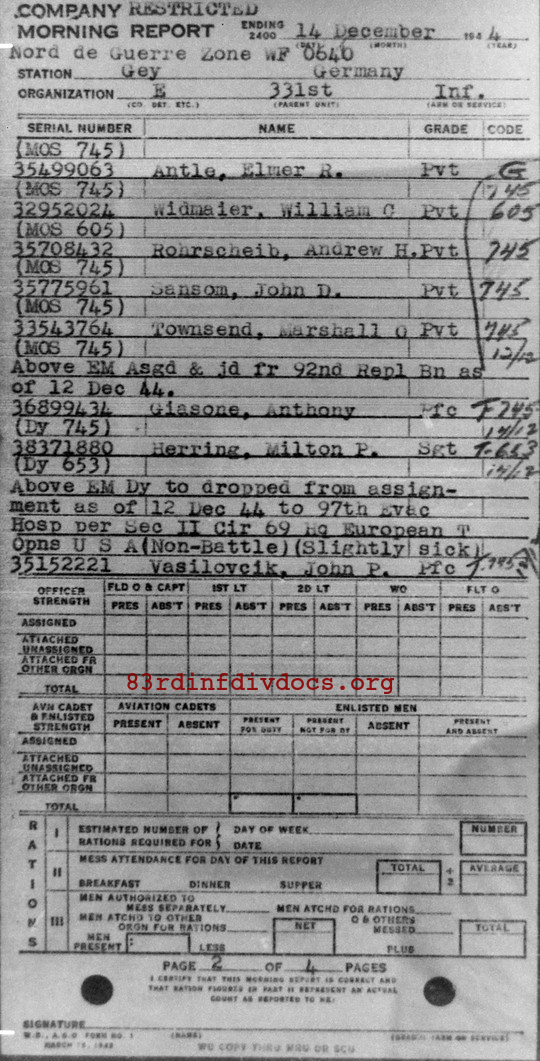 COMPANY RESTRICTED
MORNING REPORT ENDING 2400 14 December 1944
(DATE) (MONTH) (YEAR)
Nord de Guerre Zone WF 0640
STATION Gey Germany
ORGANIZATION E 331st Inf.
(CO. DET. ETC.) (PARENT UNIT) (ARM OR SERVICE)
SERIAL NUMBER NAME GRADE CODE
(MOS 745)
35499063 Antle, Elmer R. Pvt G
(MOS 745) 745
32952024 Widmaier, William C Pvt 605
(MOS 605)
35708432 Rohrscheib, Andrew H. Pvt 745
(MOS 745)
35775961 Sansom, John D. Pvt 745
(MOS 745)
33543764 Townsend, Marshall O Pvt 745
(MOS 745) 12/12
Above EM Asgd & jd fr 92nd Repl Bn as
of 12 Dec 44.
36899434 Giasone, Anthony Pfc T-745
(Dy 745) 12/12
38371880 Herring, Milton P. Sgt T-653
(Dy 653) 12/12
Above EM Dy to dropped from assign-
ment as of 12 Dec 44 to 97th Evac
Hosp per Sec II Cir 69 Hq European T
Opns U S A (Non-Battle) (Slightly sick)
35152221 Vasilovcik, John P. Pfc T-745
OFFICER STRENGTH FLD O & CAPT 1ST LT 2D LT WO FLT O
PRES ABS'T PRES ABS'T PRES ABS'T PRES ABS'T PRES ABS'T
ASSIGNED
ATTACHED UNASSIGNED
ATTACHED FR OTHER ORGN
TOTAL
83rdinfdivdocs.org
AVN CADET & ENLISTED STRENGTH AVIATION CADETS ENLISTED MEN
PRESENT ABSENT PRESENT FOR DUTY PRESENT NOT FOR DY ABSENT PRESENT AND ABSENT
ASSIGNED
ATTACHED UNASSIGNED
ATTACHED FR OTHER ORGN
TOTAL
RATIONS
I ESTIMATED NUMBER OF RATIONS REQUIRED FOR DAY OF WEEK DATE NUMBER
II MESS ATTENDANCE FOR DAY OF THIS REPORT TOTAL ÷ 3 AVERAGE
BREAKFAST DINNER SUPPER
III MEN AUTHORIZED TO MESS SEPARATELY MEN ATCHD FOR RATIONS
MEN ATCHD TO OTHER ORGN FOR RATIONS NET & OTHERS MESSED TOTAL
MEN PRESENT LESS PLUS
PAGE 2 OF 4 PAGES
I CERTIFY THAT THIS MORNING REPORT IS CORRECT AND
THAT RATION FIGURES IN PART II REPRESENT AN ACTUAL
COUNT AS REPORTED TO ME:
SIGNATURE
W.D., A.G.O. FORM NO. 1 (NAME) (GRADE) (ARM OR SERVICE)
MARCH 15, 1943
WD COPY THRU MRU OR SCU